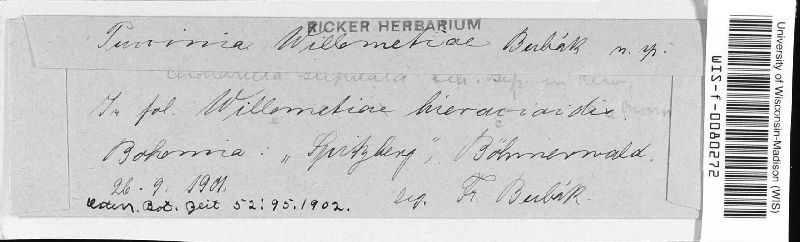 RICKER HERBARIUM
Puccinia Willemetiae Bubák n. sp.
stipitata
In fol. Willemetiae hieracioidis.
Bohemia : „Spitzberg", Böhmerwald.
26. 9. 1901.
leg. Fr. Bubák.
Oestr. Bot. Zeit 52:95.1902.
University of Wisconsin-Madison (WIS)
WIS-f-0080272